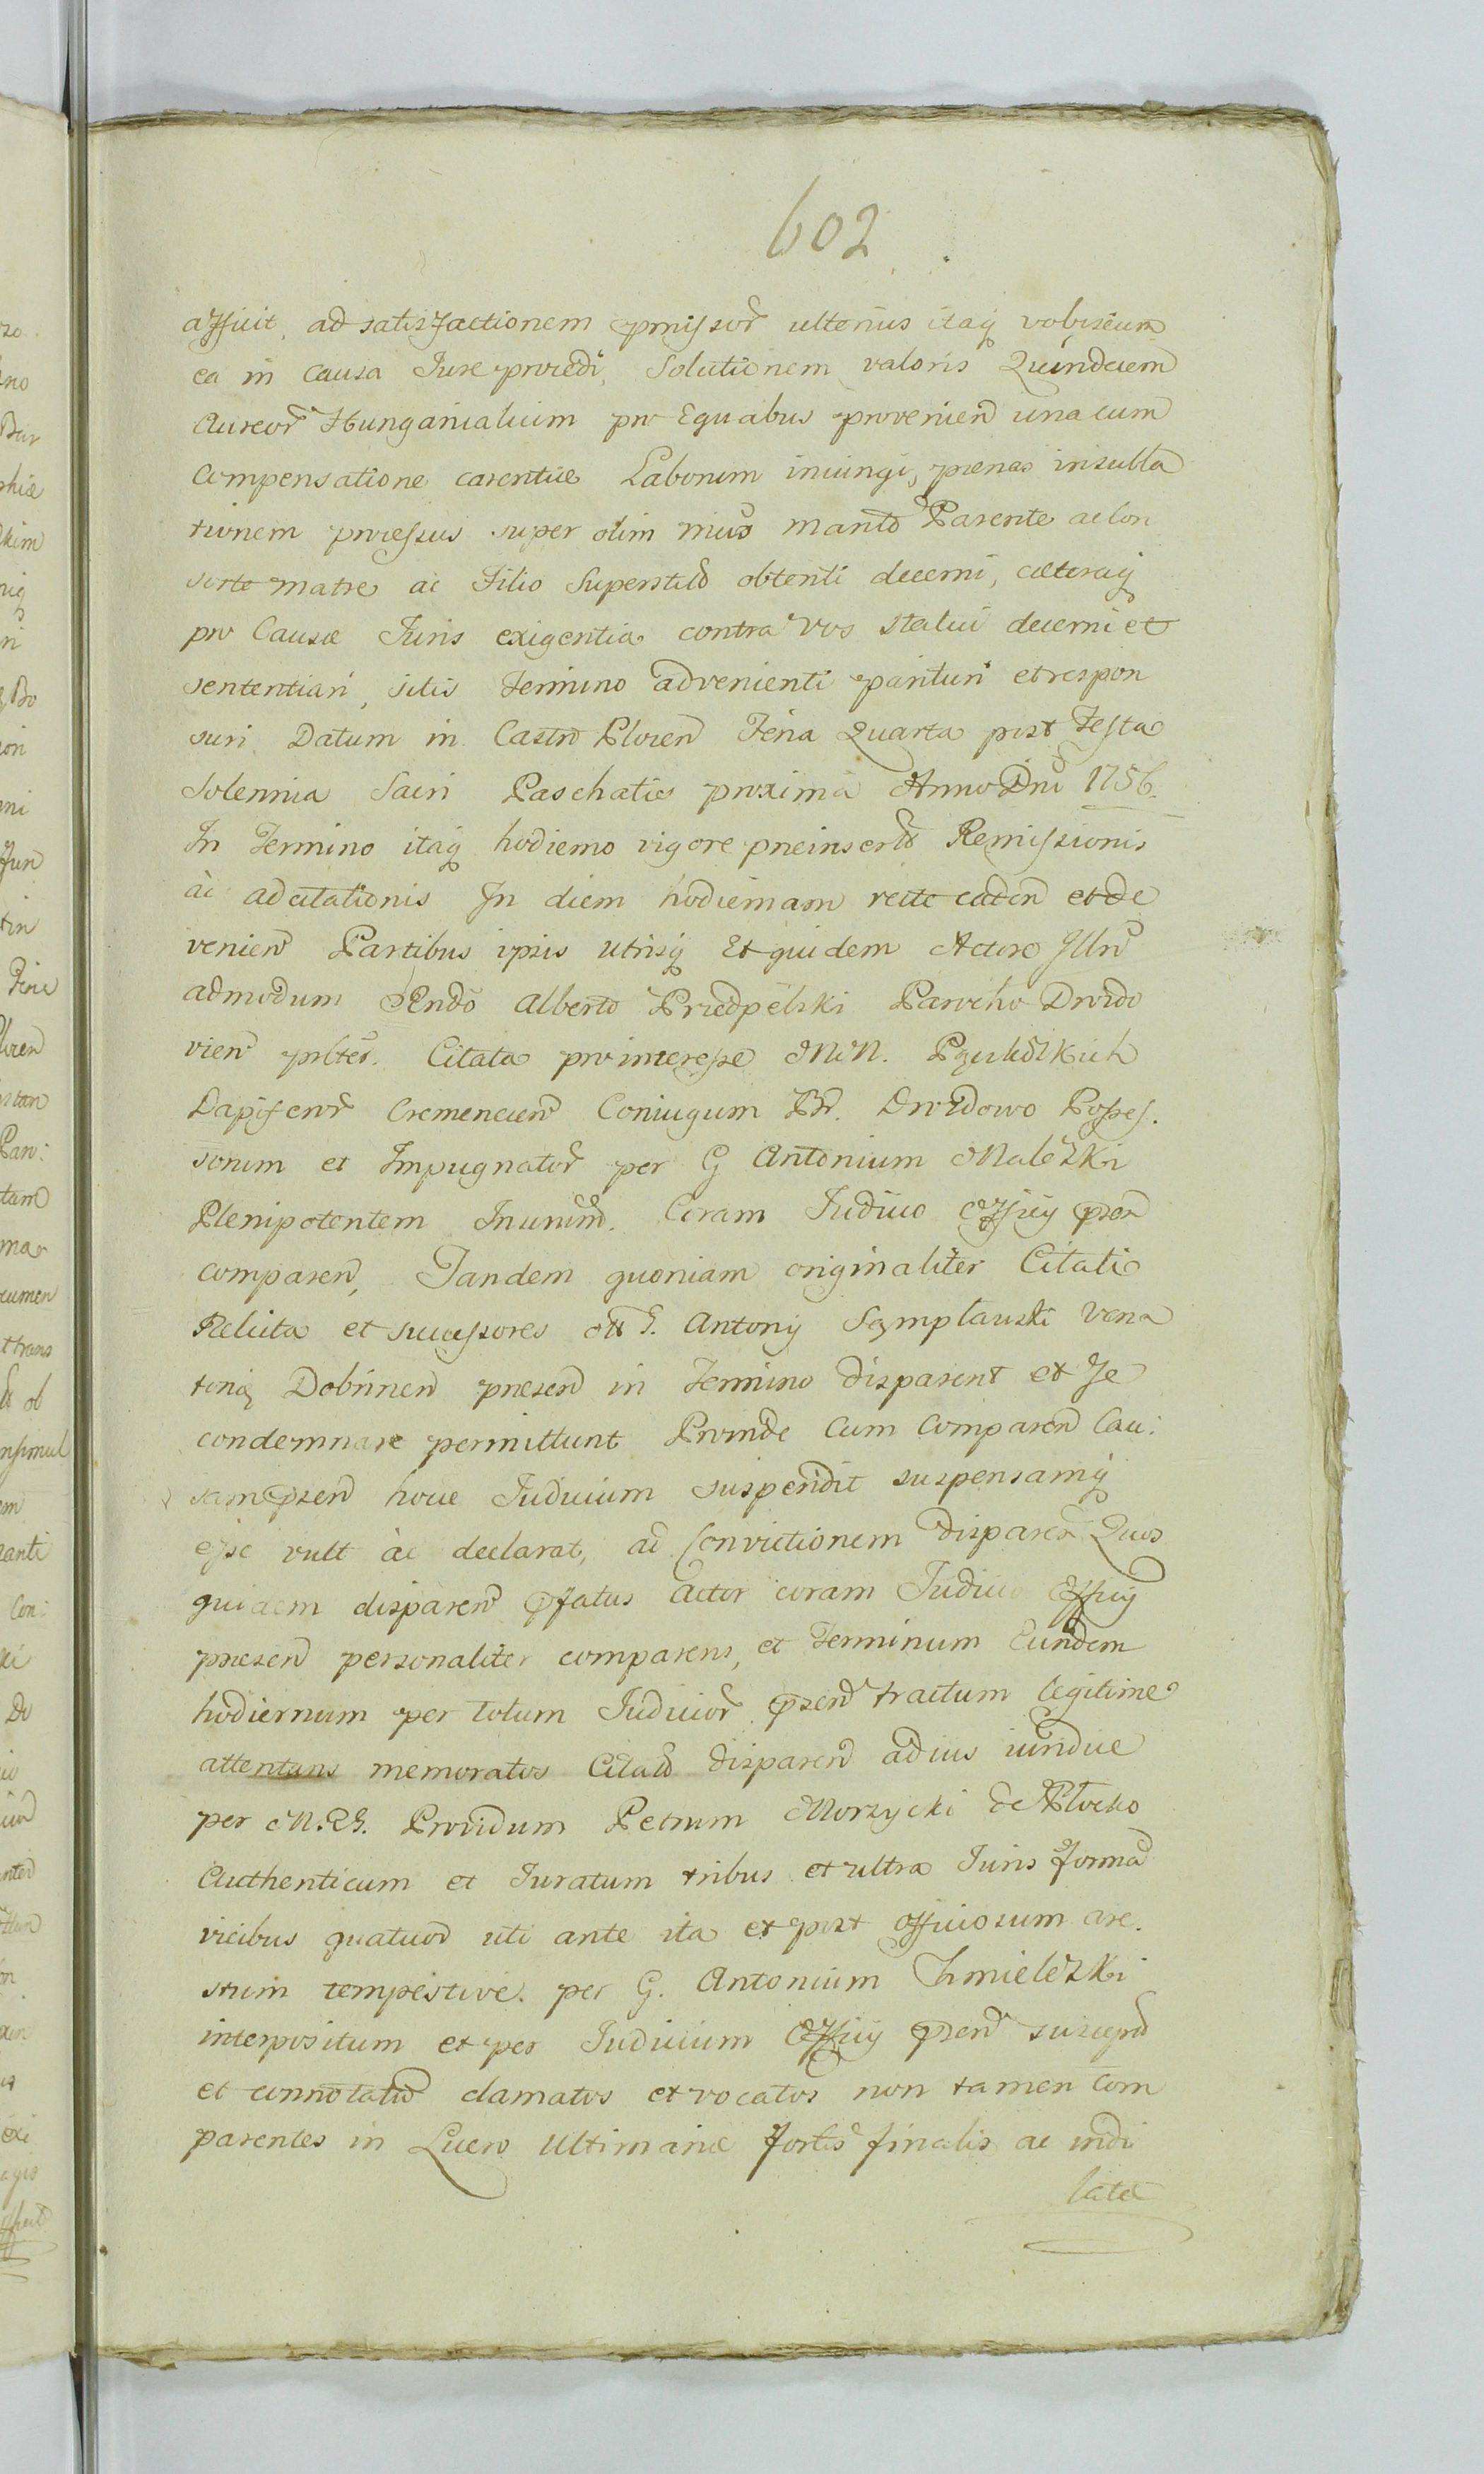 602
afficit, ad satisfactionem pmissor ulterius itaq vobiscum
ea in causa Jure procedi, Solutionem valoris Quindecim
Aureor Hungaricalium pro Equabus provenien una cum
compensatione carentiæ Laborum iniungi, pænas in subla
tionem processus super olim suo Parente ac con
sorte matre ac Filio Superstit obtenti decerni, cæteraq
pro Causæ Juris exigentia contra Vos statui decerni et
sententiari, sitis Termino advenienti parituri et respon
suri. Datum in Castro Plocen Feria Quarta post Festa
Solennia Sacri Paschatis proxima Anno Dni 1756.
In Termino itaq hodierno vigore præinsert Remissionis
ac adcitationis In diem hodiernam recte caden et de
venien Partibus ipsis utrisq Et quidem Actore Illri
admodum Rndo Alberto Przedpelski Parocho Drozdo
vien pbter. Citata pro interesse MM. Pgurskich
Dapiferor Cremenecien Coniugum Br. Drozdowo Posses.
sorum et Impugnator per G Antonium Maleszki
Plenipotentem Inunum. Coram Judicio Officij psen
comparen, Tandem quoniam originaliter Citati
Relicta et successores M G. Antonij Szmplawski Vena
toris Dobrinen præsen in Termino disparent et se
condemnare permittunt Proinde Cum Comparen Cau:
sam psen hocce Judicium suspendit suspensamq
esse vult ac declarat, ad Convictionem disparen Quos
quidem disparen pfatus Actor coram Judicio Officij
præsen personaliter comparens, et Terminum Eundem
hodiernum per totum Judicior psen tractum legitime
attentans memoratos Citatos disparen ad ius iuridice
per M. RG. Providum Petrum Morzycki de Plocko
Authenticum et Juratum tribus et ultra Juris forma
vicibus quatuor uti ante ita et post officiosum are.
stum tempestive per G. Antonium Chmieleszki
interpositum et per Judicium Officij psen suscept
et connotatum clamatos et vocatos non tamen com
parentes in Lucro Ultimariæ fortis finalis ac indi
latæ